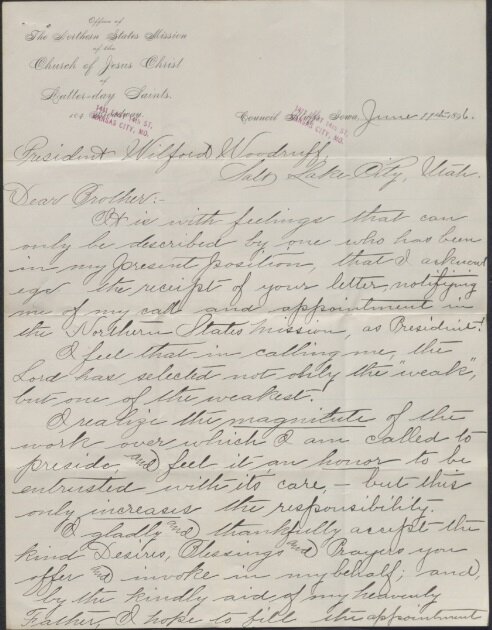 Office of
The Northern States Mission
of the
Church of Jesus Christ
of
Latter-day Saints.
104 Broadway.
1411 EAST 14th ST.
KANSAS CITY, MO.
Council Bluffs, Iowa, June 11th 1896.
1411 EAST 14th ST.
KANSAS CITY, MO.
President Wilford Woodruff,
Salt Lake City, Utah.
Dear Brother:-
It is with feelings that can
only be described by one who has been
in my present position, that I acknowl
ege the receipt of your letter, notifying
me of my call and appointment in
the Northern States mission, as President.
I feel that in calling me, the
Lord has selected not only the "weak",
but one of the weakest!
I realize the magnitute of the
work over which I am called to
preside, and feel it an honor to be
entrusted with its care, - but this
only increases the responsibility.
I gladly and thankfully accept the
kind Desires, Blessings and Prayers you
offer and invoke in my behalf; and,
by the kindly aid of my heavenly
Father, I hope to fill the appointment